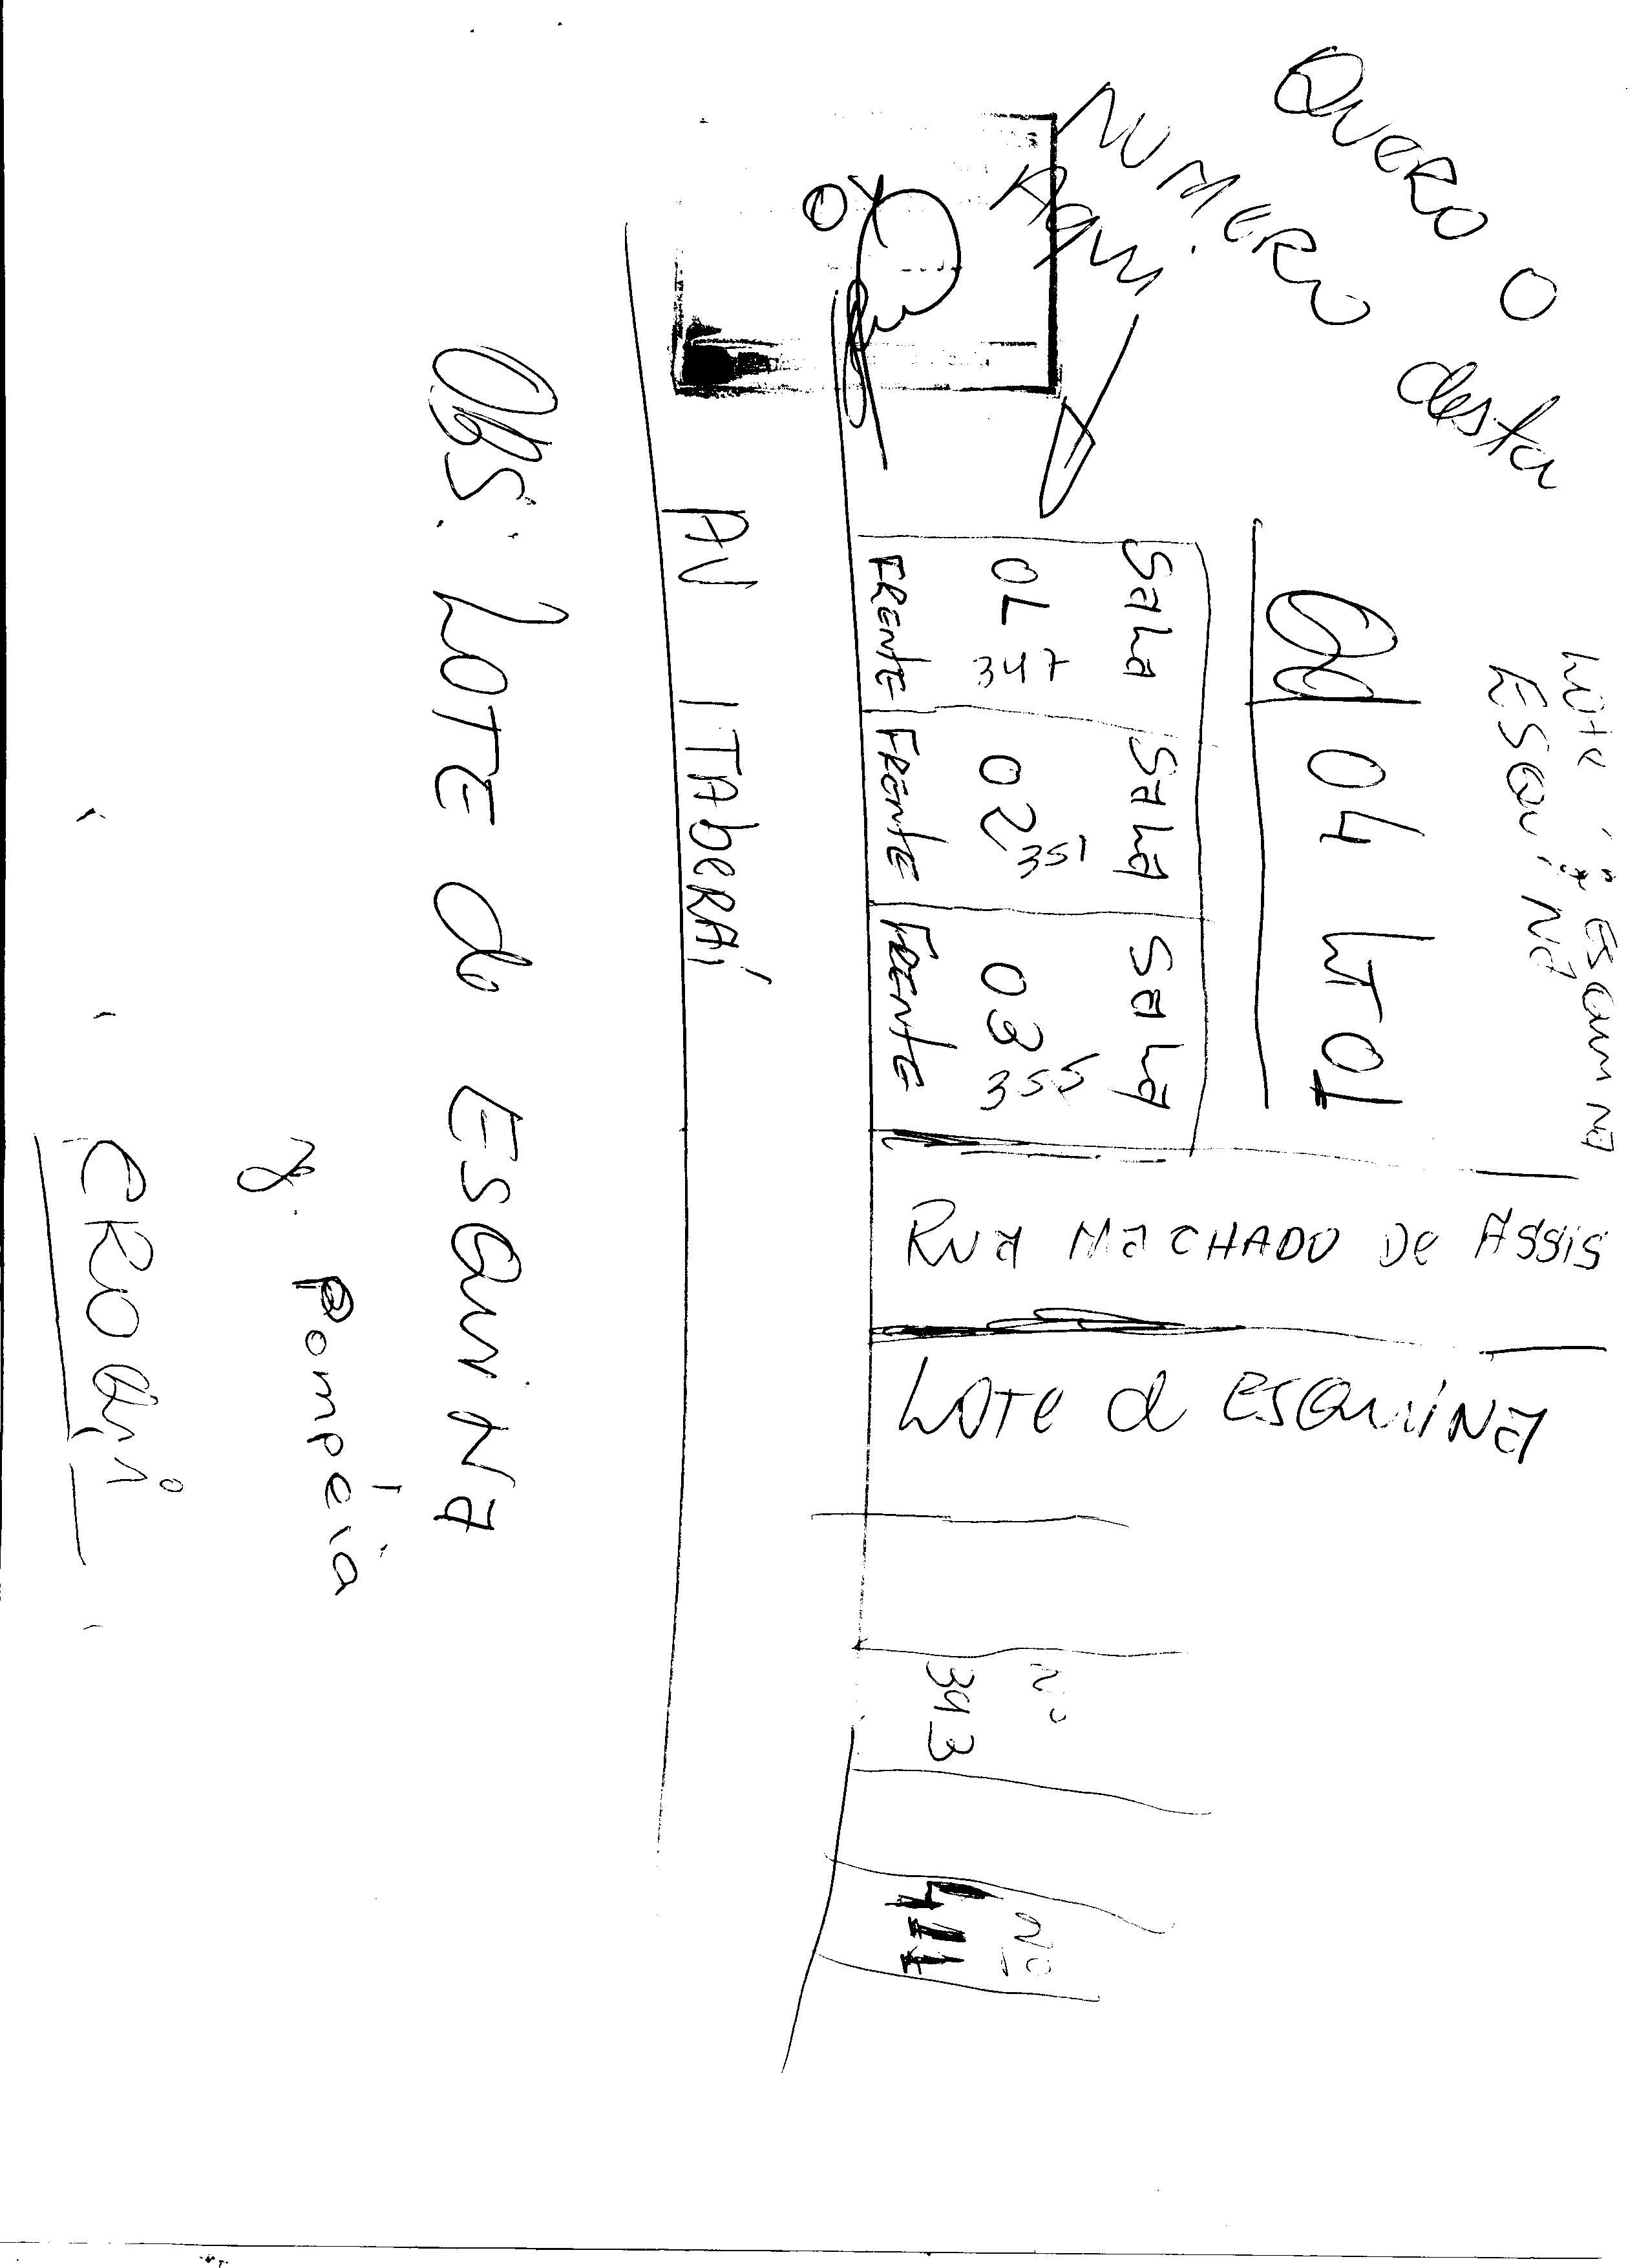 QUERO O
NUMERO desta
Aqui
Lote
ESQUINA
Qd 04 LT 01
Sala
01
347
FRENTE
Sala
02
351
FRENTE
Sala
03
355
FRENTE
RUA MACHADO De ASSIS
LOTe d ESQUINA
Nº
393
Nº
411
AV ITAbERAÍ
OBS: LOTE de ESQUINA
Pompéia
CROQui